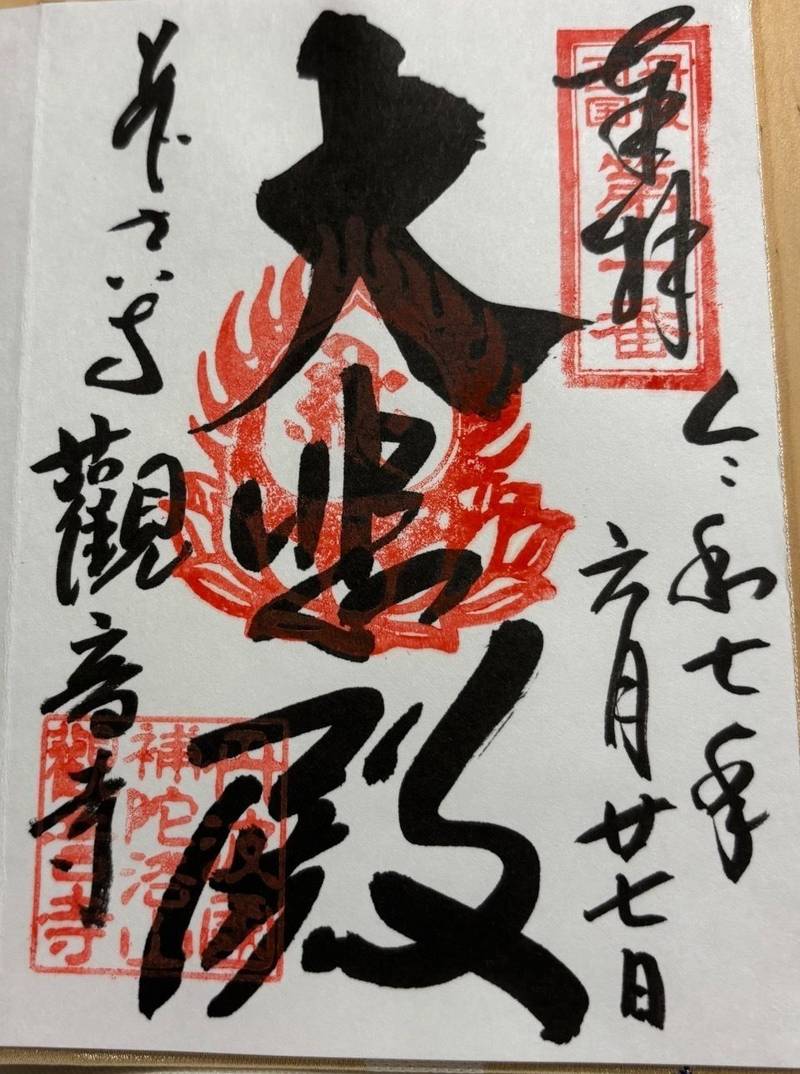 奉拝
丹波
西国
第一番
令和七年
六月廿七日
大悲殿
觀音寺
丹波國
補陀洛山
觀音寺